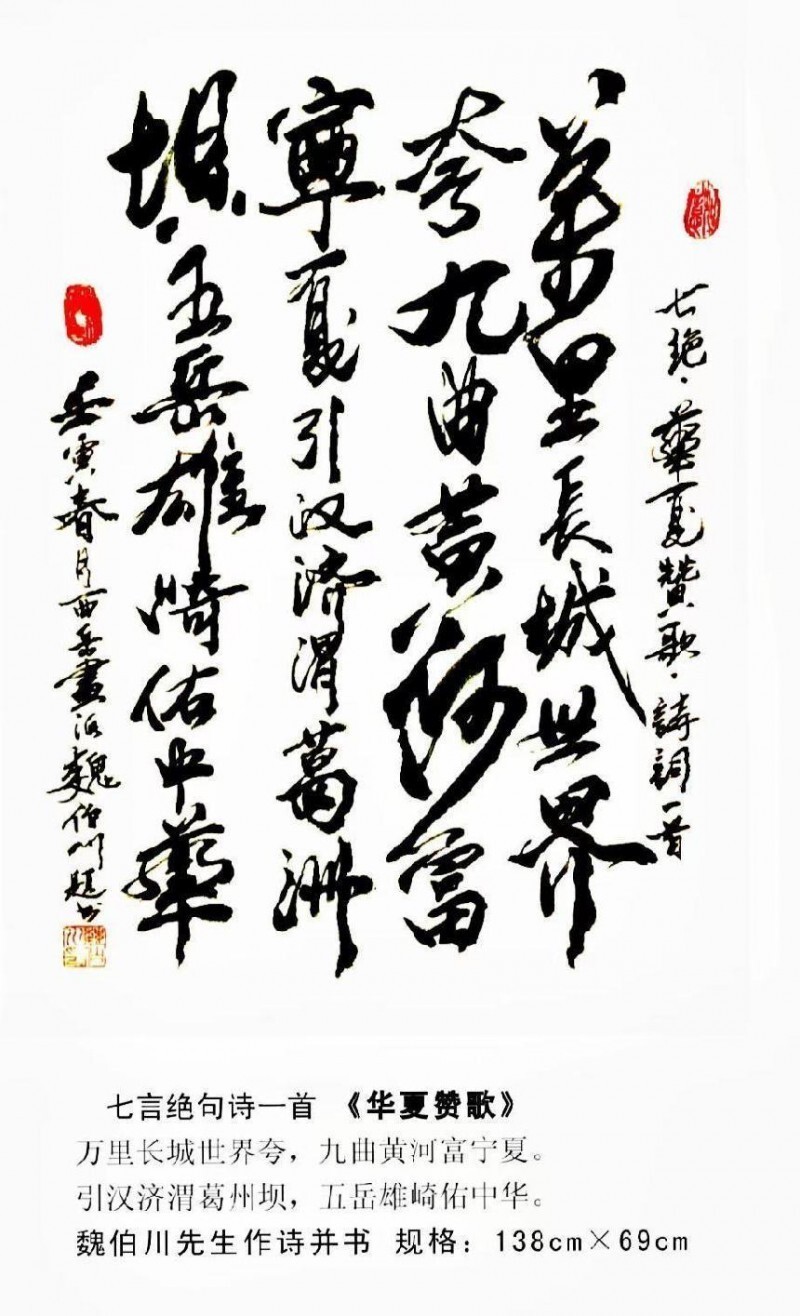 七绝·華夏贊歌·詩詞一首
萬里長城世界
夸九曲黄河富
寧夏引汉济渭葛洲
坝·五岳雄崎佑中華
壬寅春月西岳畫派魏伯川題书
七言绝句诗一首 《华夏赞歌》
万里长城世界夸，九曲黄河富宁夏。
引汉济渭葛州坝，五岳雄崎佑中华。
魏伯川先生作诗并书 规格：138cm×69cm